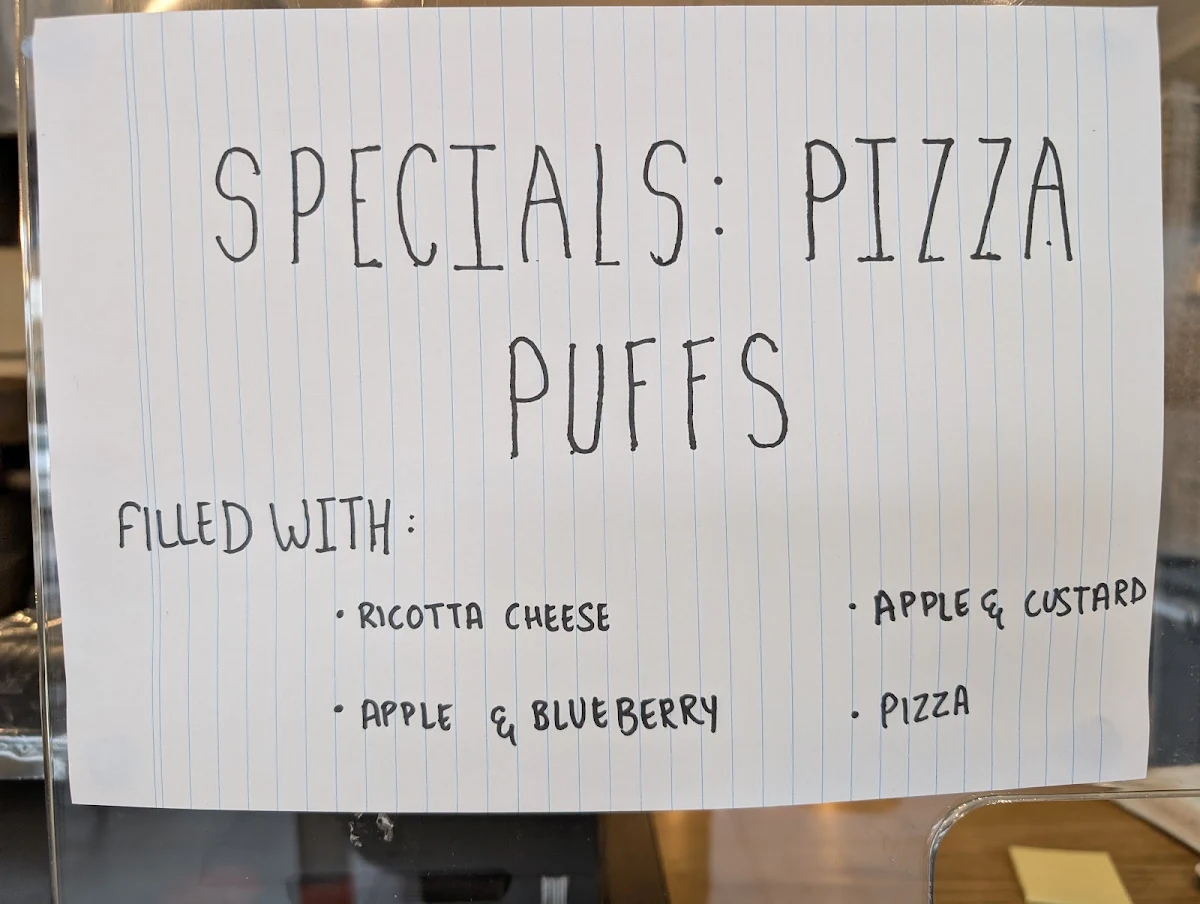 SPECIALS: PIZZA
PUFFS
FILLED WITH:
• RICOTTA CHEESE
• APPLE & BLUEBERRY
• APPLE & CUSTARD
• PIZZA